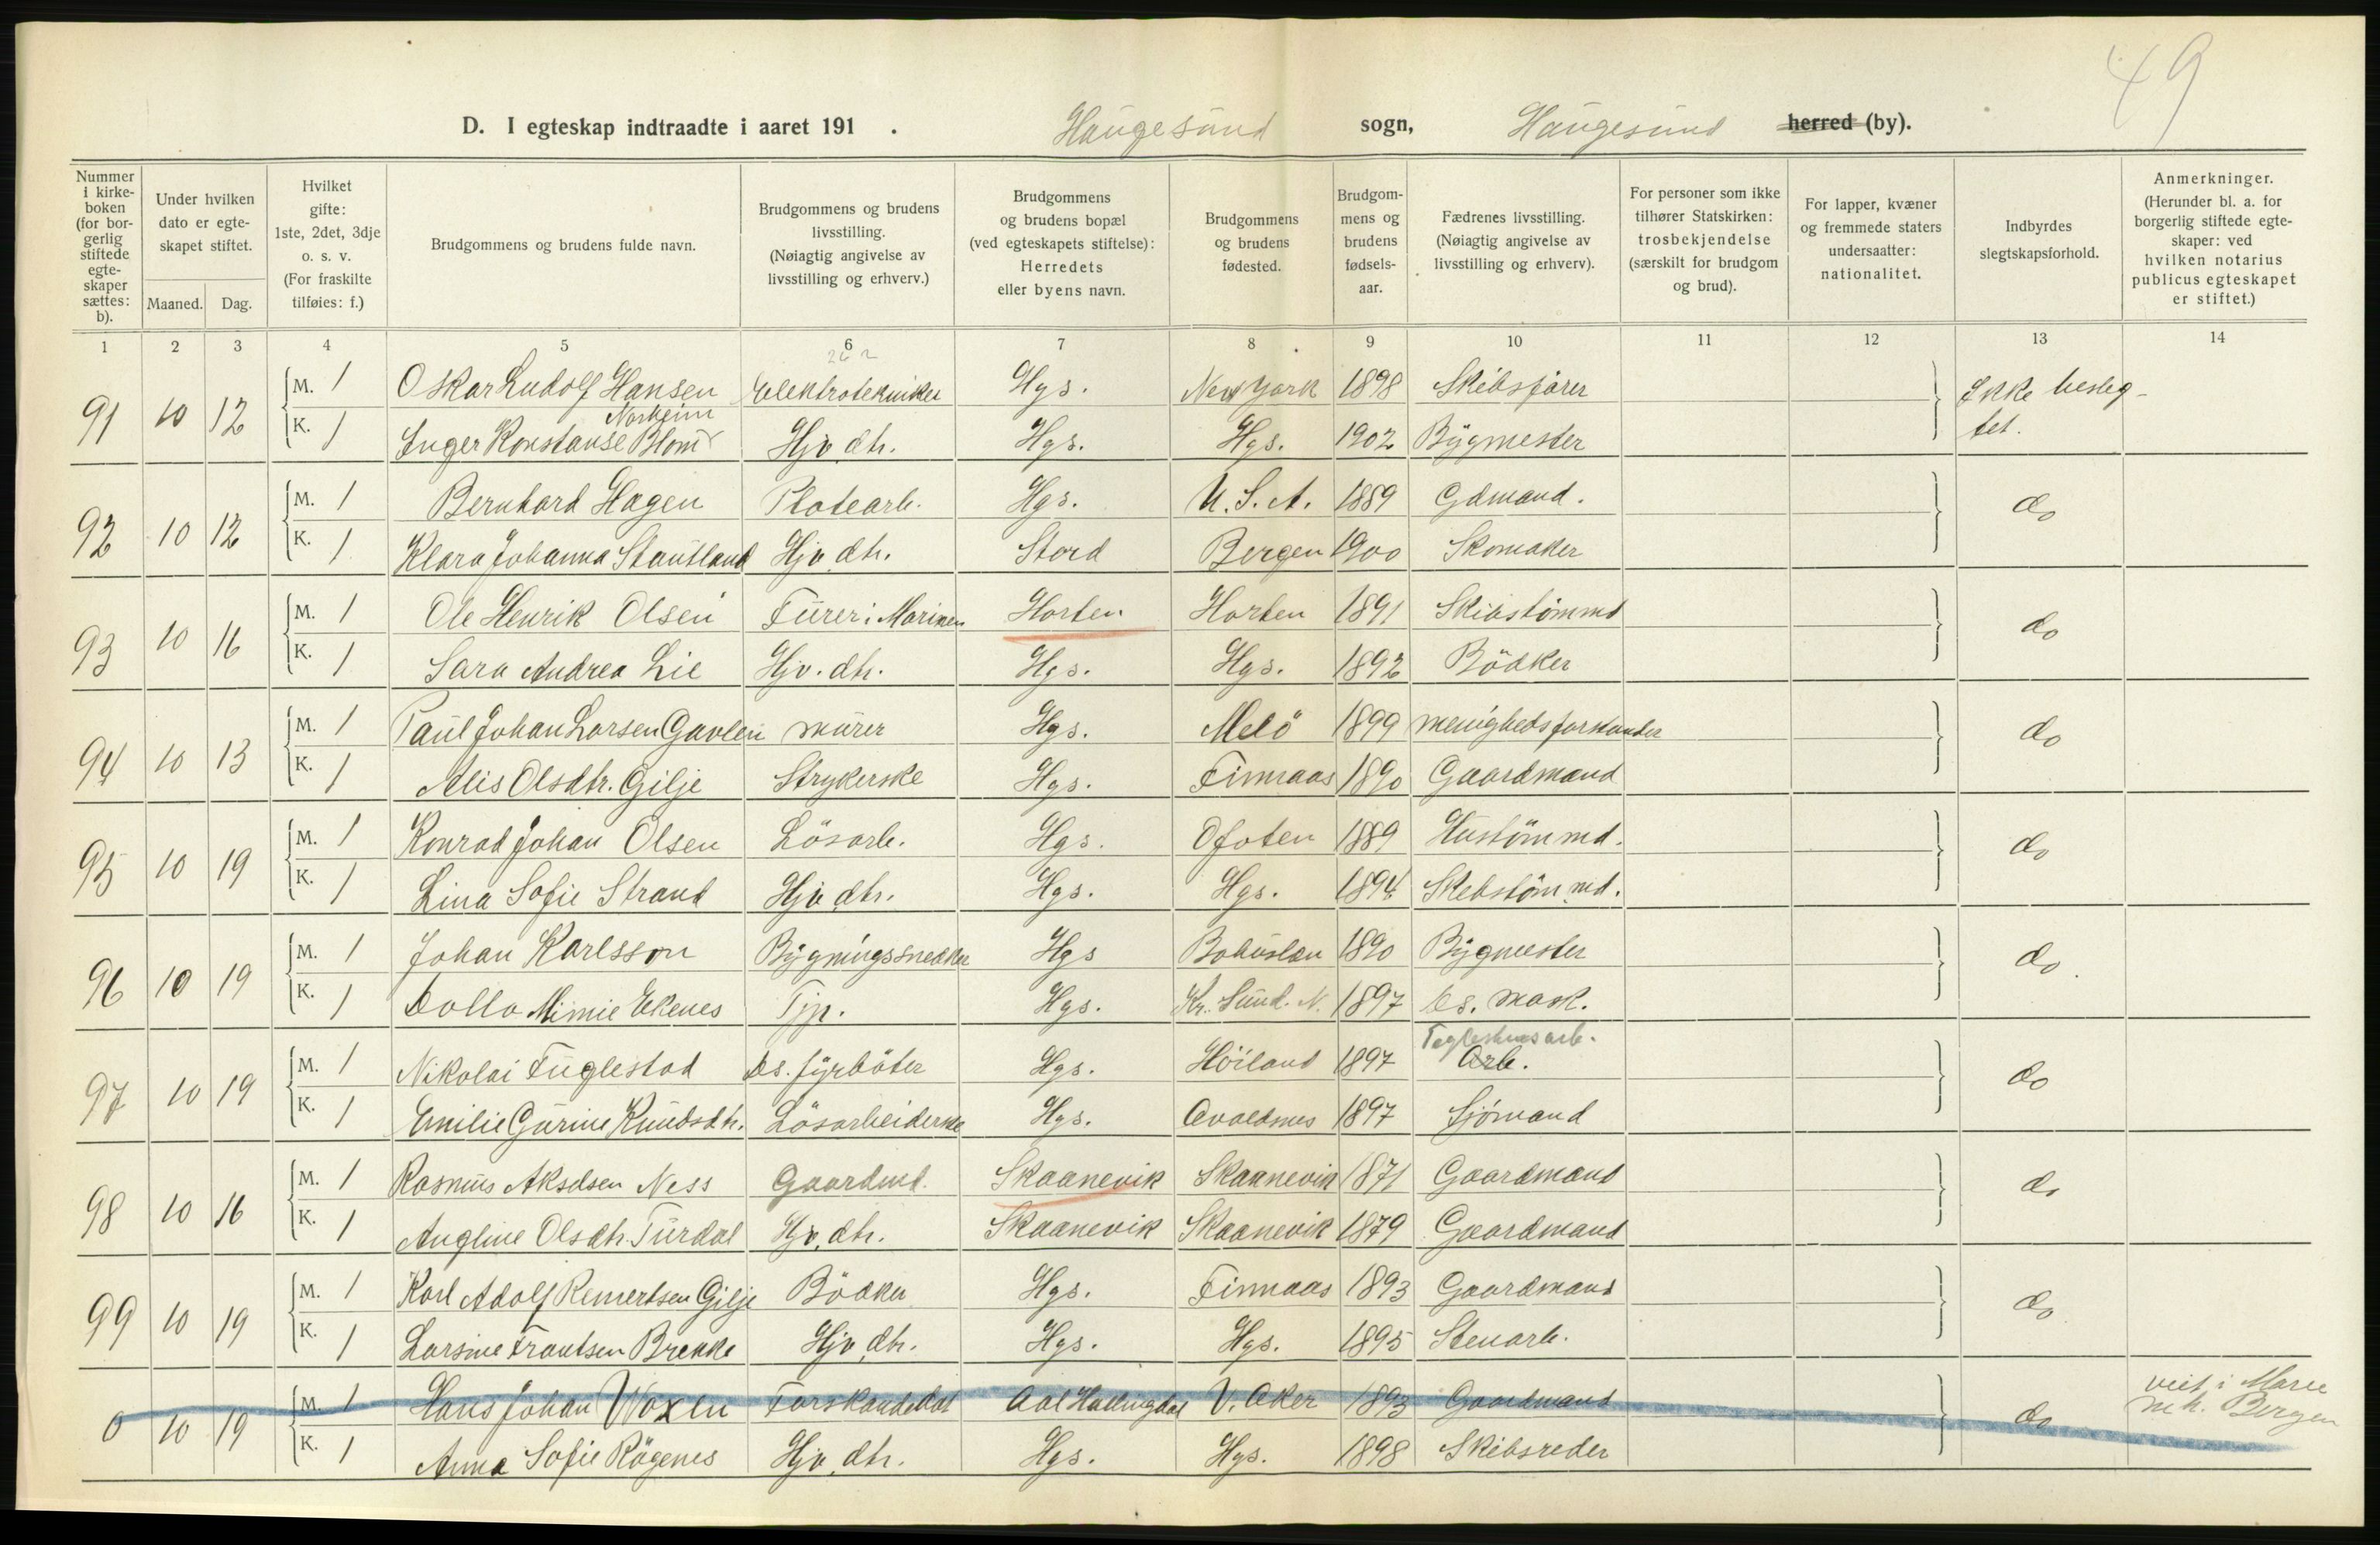 49
D. I egteskap indtraadte i aaret 191 . Haugesund sogn, Haugesund herred (by).
Nummer i kirke-boken (for bor-gerlig stiftede egte-skaper sættes: b).
Under hvilken dato er egte-skapet stiftet.
Maaned. Dag.
Hvilket gifte: 1ste, 2det, 3dje o. s. v. (For fraskilte tilføies: f.)
Brudgommens og brudens fulde navn.
Brudgommens og brudens livsstilling. (Nøiagtig angivelse av livsstilling og erhverv.)
Brudgommens og brudens bopæl (ved egteskapets stiftelse): Herredets eller byens navn.
Brudgommens og brudens fødested.
Brudgom-mens og brudens fødsels-aar.
Fædrenes livsstilling. (Nøiagtig angivelse av livsstilling og erhverv).
For personer som ikke tilhører Statskirken: trosbekjendelse (særskilt for brudgom og brud).
For lapper, kvæner og fremmede staters undersaatter: nationalitet.
Indbyrdes slegtskapsforhold.
Anmerkninger. (Herunder bl. a. for borgerlig stiftede egte-skaper: ved hvilken notarius publicus egteskapet er stiftet.)
1 2 3 4 5 6 7 8 9 10 11 12 13 14
91 10 12 M. 1 Oskar Ludolf Hansen Elektrotekniker Hgs. New York 1898 Skibsfører Ikke besleg-
Norheim
K. 1 Inger Konstanse Blom Hjv. dtr. Hgs. Hgs. 1902 Bygmester tet.
92 10 12 M. 1 Bernhard Hagen Platearb. Hgs. U.S.A. 1889 Gdmand. do
K. 1 Klara Johanna Stautland Hjv. dtr. Stord Bergen 1900 Skomaker
93 10 16 M. 1 Ole Henrik Olsen Fürer i Marinen Horten Horten 1891 Skibstømmd do
K. 1 Sara Andrea Lie Hjv. dtr. Hgs. Hgs. 1892 Bödker
94 10 13 M. 1 Paul Johan Larsen Gavlen murer Hgs. Melö 1899 menighedsforstander do
K. 1 Alis Olsdtr. Gilje Strykerske Hgs. Finnaas 1890 Gaardmand
95 10 19 M. 1 Konrad Johan Olsen Lösarb. Hgs. Ofoten 1889 Hustömmd. do
K. 1 Lina Sofie Strand Hjv. dtr. Hgs. Hgs. 1894 Skebstömmd.
96 10 19 M. 1 Johan Karlsson Bygningssnedker Hgs Bohuslen 1890 Bygmester do.
K. 1 Dolla Mimie Ekenes Tjp. Hgs. Kr. Sund. N. 1897 Ds. mask.
Tegleskersarb.
97 10 19 M. 1 Nikolai Fuglestad Ds. fyrböter Hgs. Höiland 1897 Arb. do
K. 1 Emilie Gurine Knudsdtr. Lösarbeiderske Hgs. Avaldsnes 1897 Sjömand
98 10 16 M. 1 Rasmus Akselsen Ness Gaardmd. Skaanevik Skaanevik 1871 Gaardmand do
K. 1 Angline Olsdtr. Turdal Hjv. dtr. Skaanevik Skaanevik 1879 Gaardmand
99 10 19 M. 1 Karl Adolf Reinertsen Gilje Bödker Hgs. Finnaas 1893 Gaardmand do
K. 1 Larsine Frantsen Brekke Hjv. dtr. Hgs. Hgs. 1895 Stenarb.
0 10 19 M. 1 Hans Johan Woxen Forskandidat Aal Hallingdal V. Aker 1893 Gaardmand do viet i Marie
mk. Bergen
K. 1 Anna Sofie Rögenes Hjv. dtr. Hgs. Hgs. 1898 Skibsreder